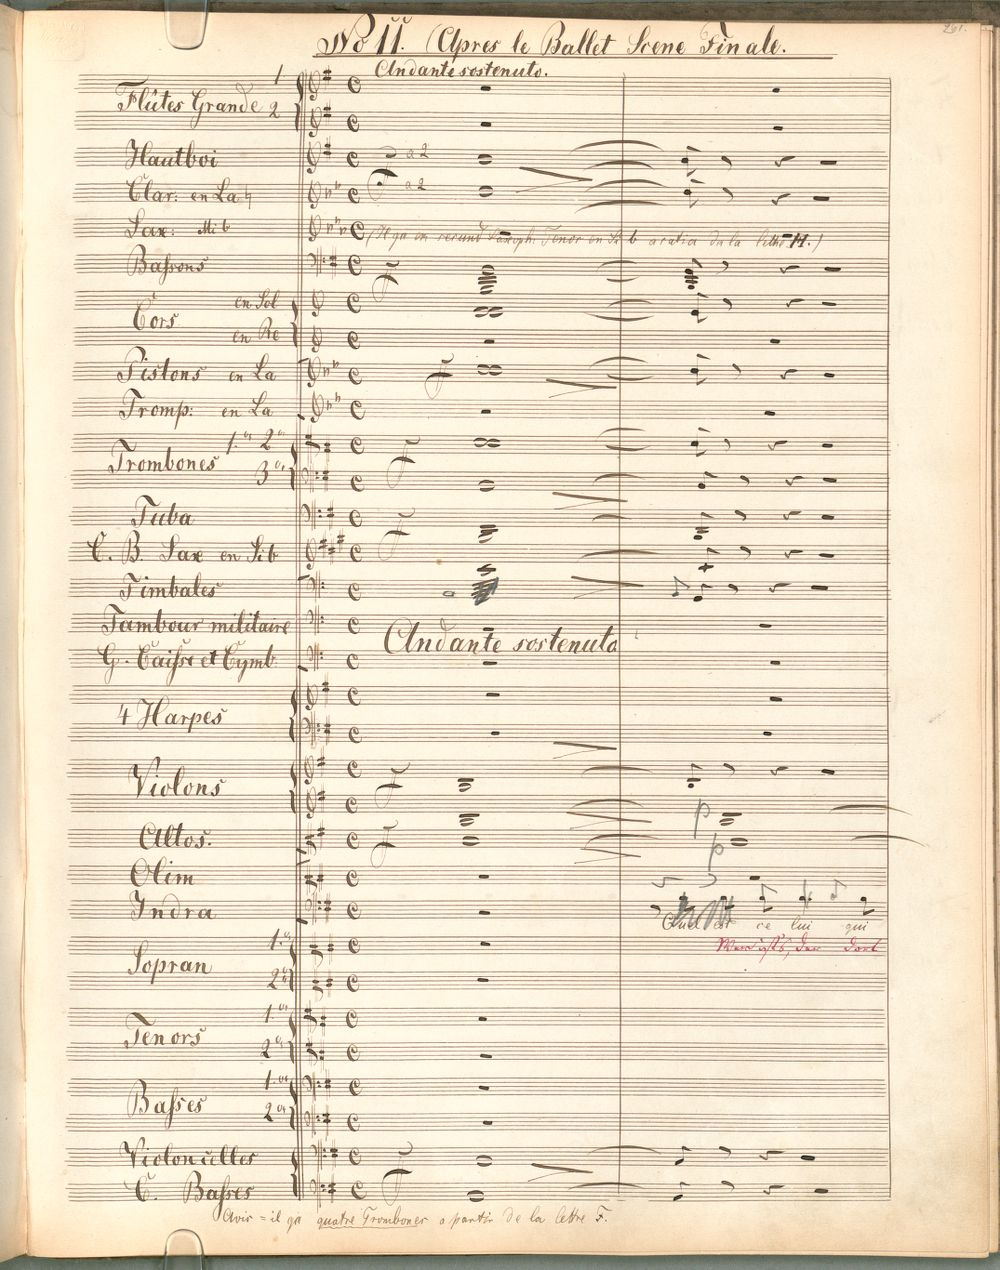 261.
No 11. (Apres le Ballet Scene Finale.
Andante sostenuto.
Flûtes Grande 1
2
Hautboi a 2
Clar: en La ♮ a 2
Sax: Mi b
(Il y a un second Saxoph: Tenor en Si b a la lettre H.)
Bassons F
Cors en Sol
en Re
Pistons en La F
Tromp: en La
Trombones 1.er 2e F
3e
Tuba F
C. B. Sax en Sib
Timbales
Tambour militaire
Andante sostenuto
G. Caisse et Cymb.
4 Harpes
Violons F
p
Altos. F
p
Olim
Indra
Quel est ce lui qui
Wer ist's, der dort
Sopran 1.er
2e
Tenors 1.er
2e
Basses 1.er
2e
Violoncelles F
C. Basses F
Avis = il y a quatre Trombones a partir de la lettre F.